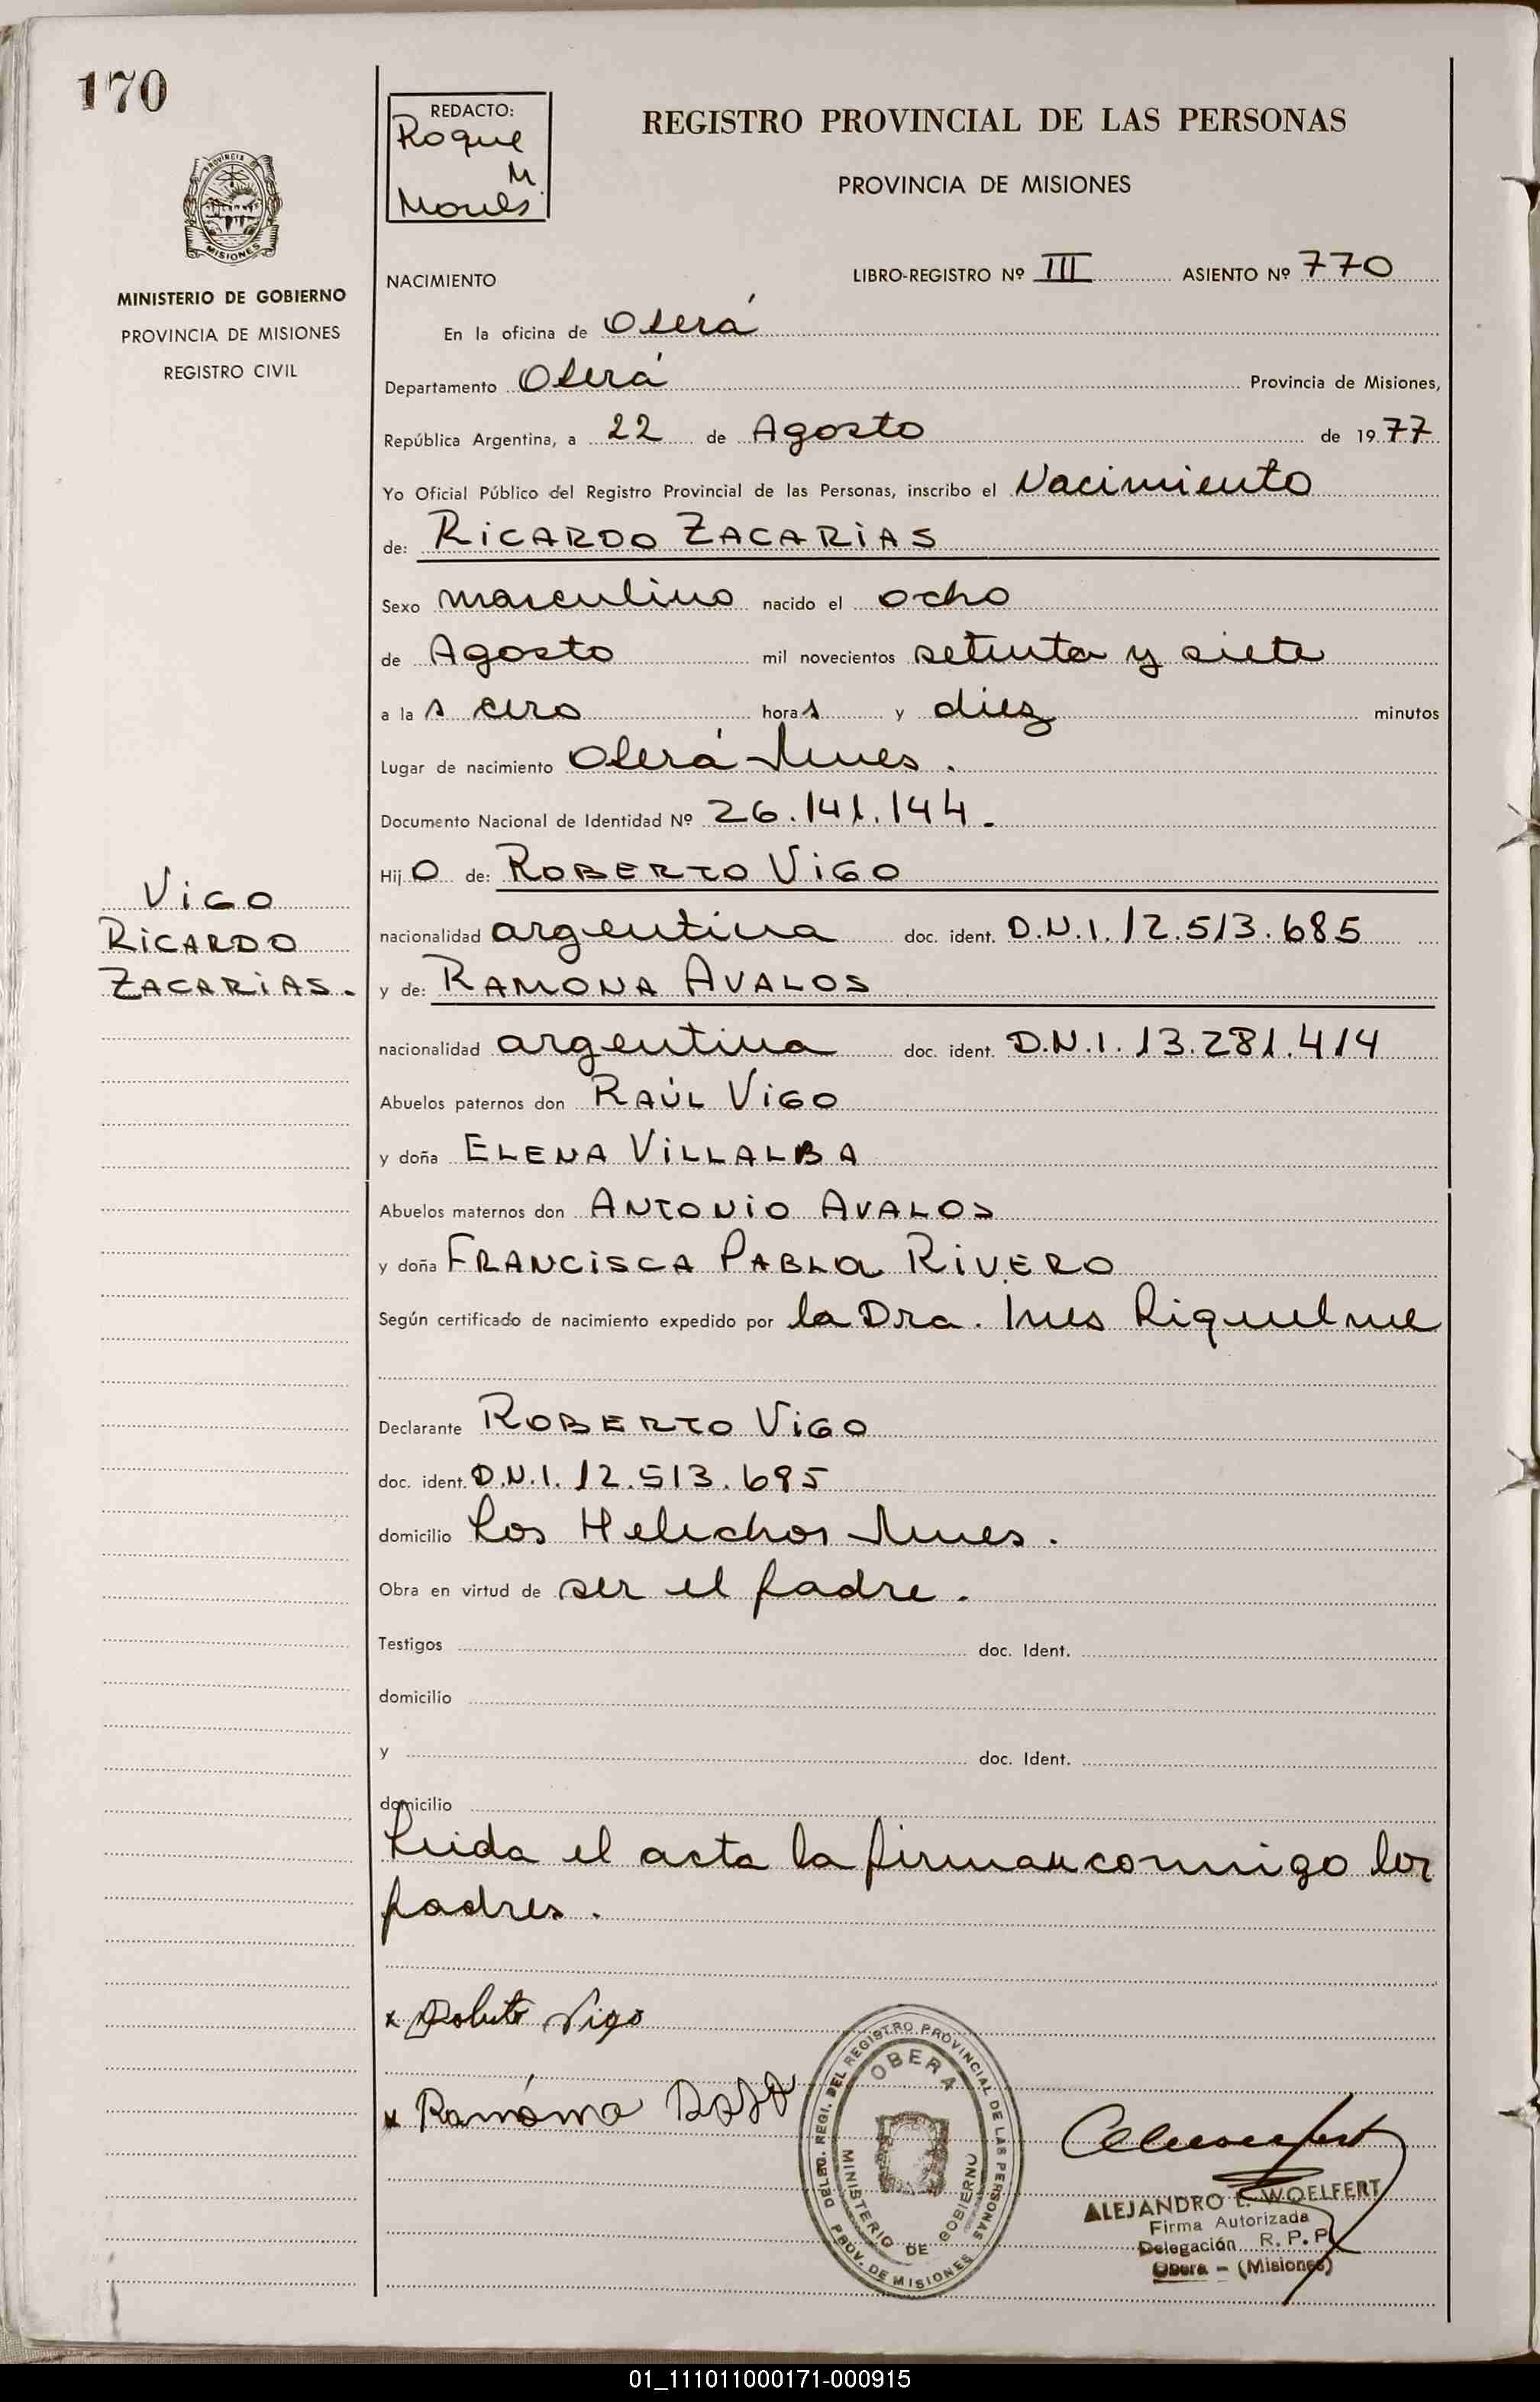 170
REDACTO:
Roque
M.
REGISTRO PROVINCIAL DE LAS PERSONAS
PROVINCIA DE MISIONES
PROVINCIA DE
MISIONES
MINISTERIO DE GOBIERNO
PROVINCIA DE MISIONES
REGISTRO CIVIL
NACIMIENTO
LIBRO-REGISTRO Nº III ASIENTO Nº 770
En la oficina de Oberá
Departamento Oberá Provincia de Misiones,
República Argentina, a 22 de Agosto de 1977
Yo Oficial Público del Registro Provincial de las Personas, inscribo el Nacimiento
de: RICARDO ZACARIAS
Sexo masculino nacido el ocho
de Agosto mil novecientos setenta y siete
a las cero horas y diez minutos
Lugar de nacimiento Oberá Mnes.
Documento Nacional de Identidad Nº 26.141.144.
Hijo de: ROBERTO VIGO
VIGO
RICARDO
ZACARIAS.
nacionalidad argentina doc. ident. D.N.I. 12.513.685
y de: RAMONA AVALOS
nacionalidad argentina doc. ident. D.N.I. 13.281.414
Abuelos paternos don RAÚL VIGO
y doña ELENA VILLALBA
Abuelos maternos don ANTONIO AVALOS
y doña FRANCISCA PABLA RIVERO
Según certificado de nacimiento expedido por la Dra. Ines Riquelme
Declarante ROBERTO VIGO
doc. ident. D.N.I. 12.513.685
domicilio Los Helechos Mnes.
Obra en virtud de ser el padre.
Testigos doc. Ident.
domicilio
y doc. Ident.
domicilio
Leida el acta la firman conmigo los
padres.
x Roberto Vigo
x Ramona
DELEG. REGI. DEL REGISTRO PROVINCIAL DE LAS PERSONAS
OBERA
MINISTERIO DE GOBIERNO
PROV. DE MISIONES
ALEJANDRO E. WOELFERT
Firma Autorizada
Delegación R. P. P.
Obera - (Misiones)
01_111011000171-000915